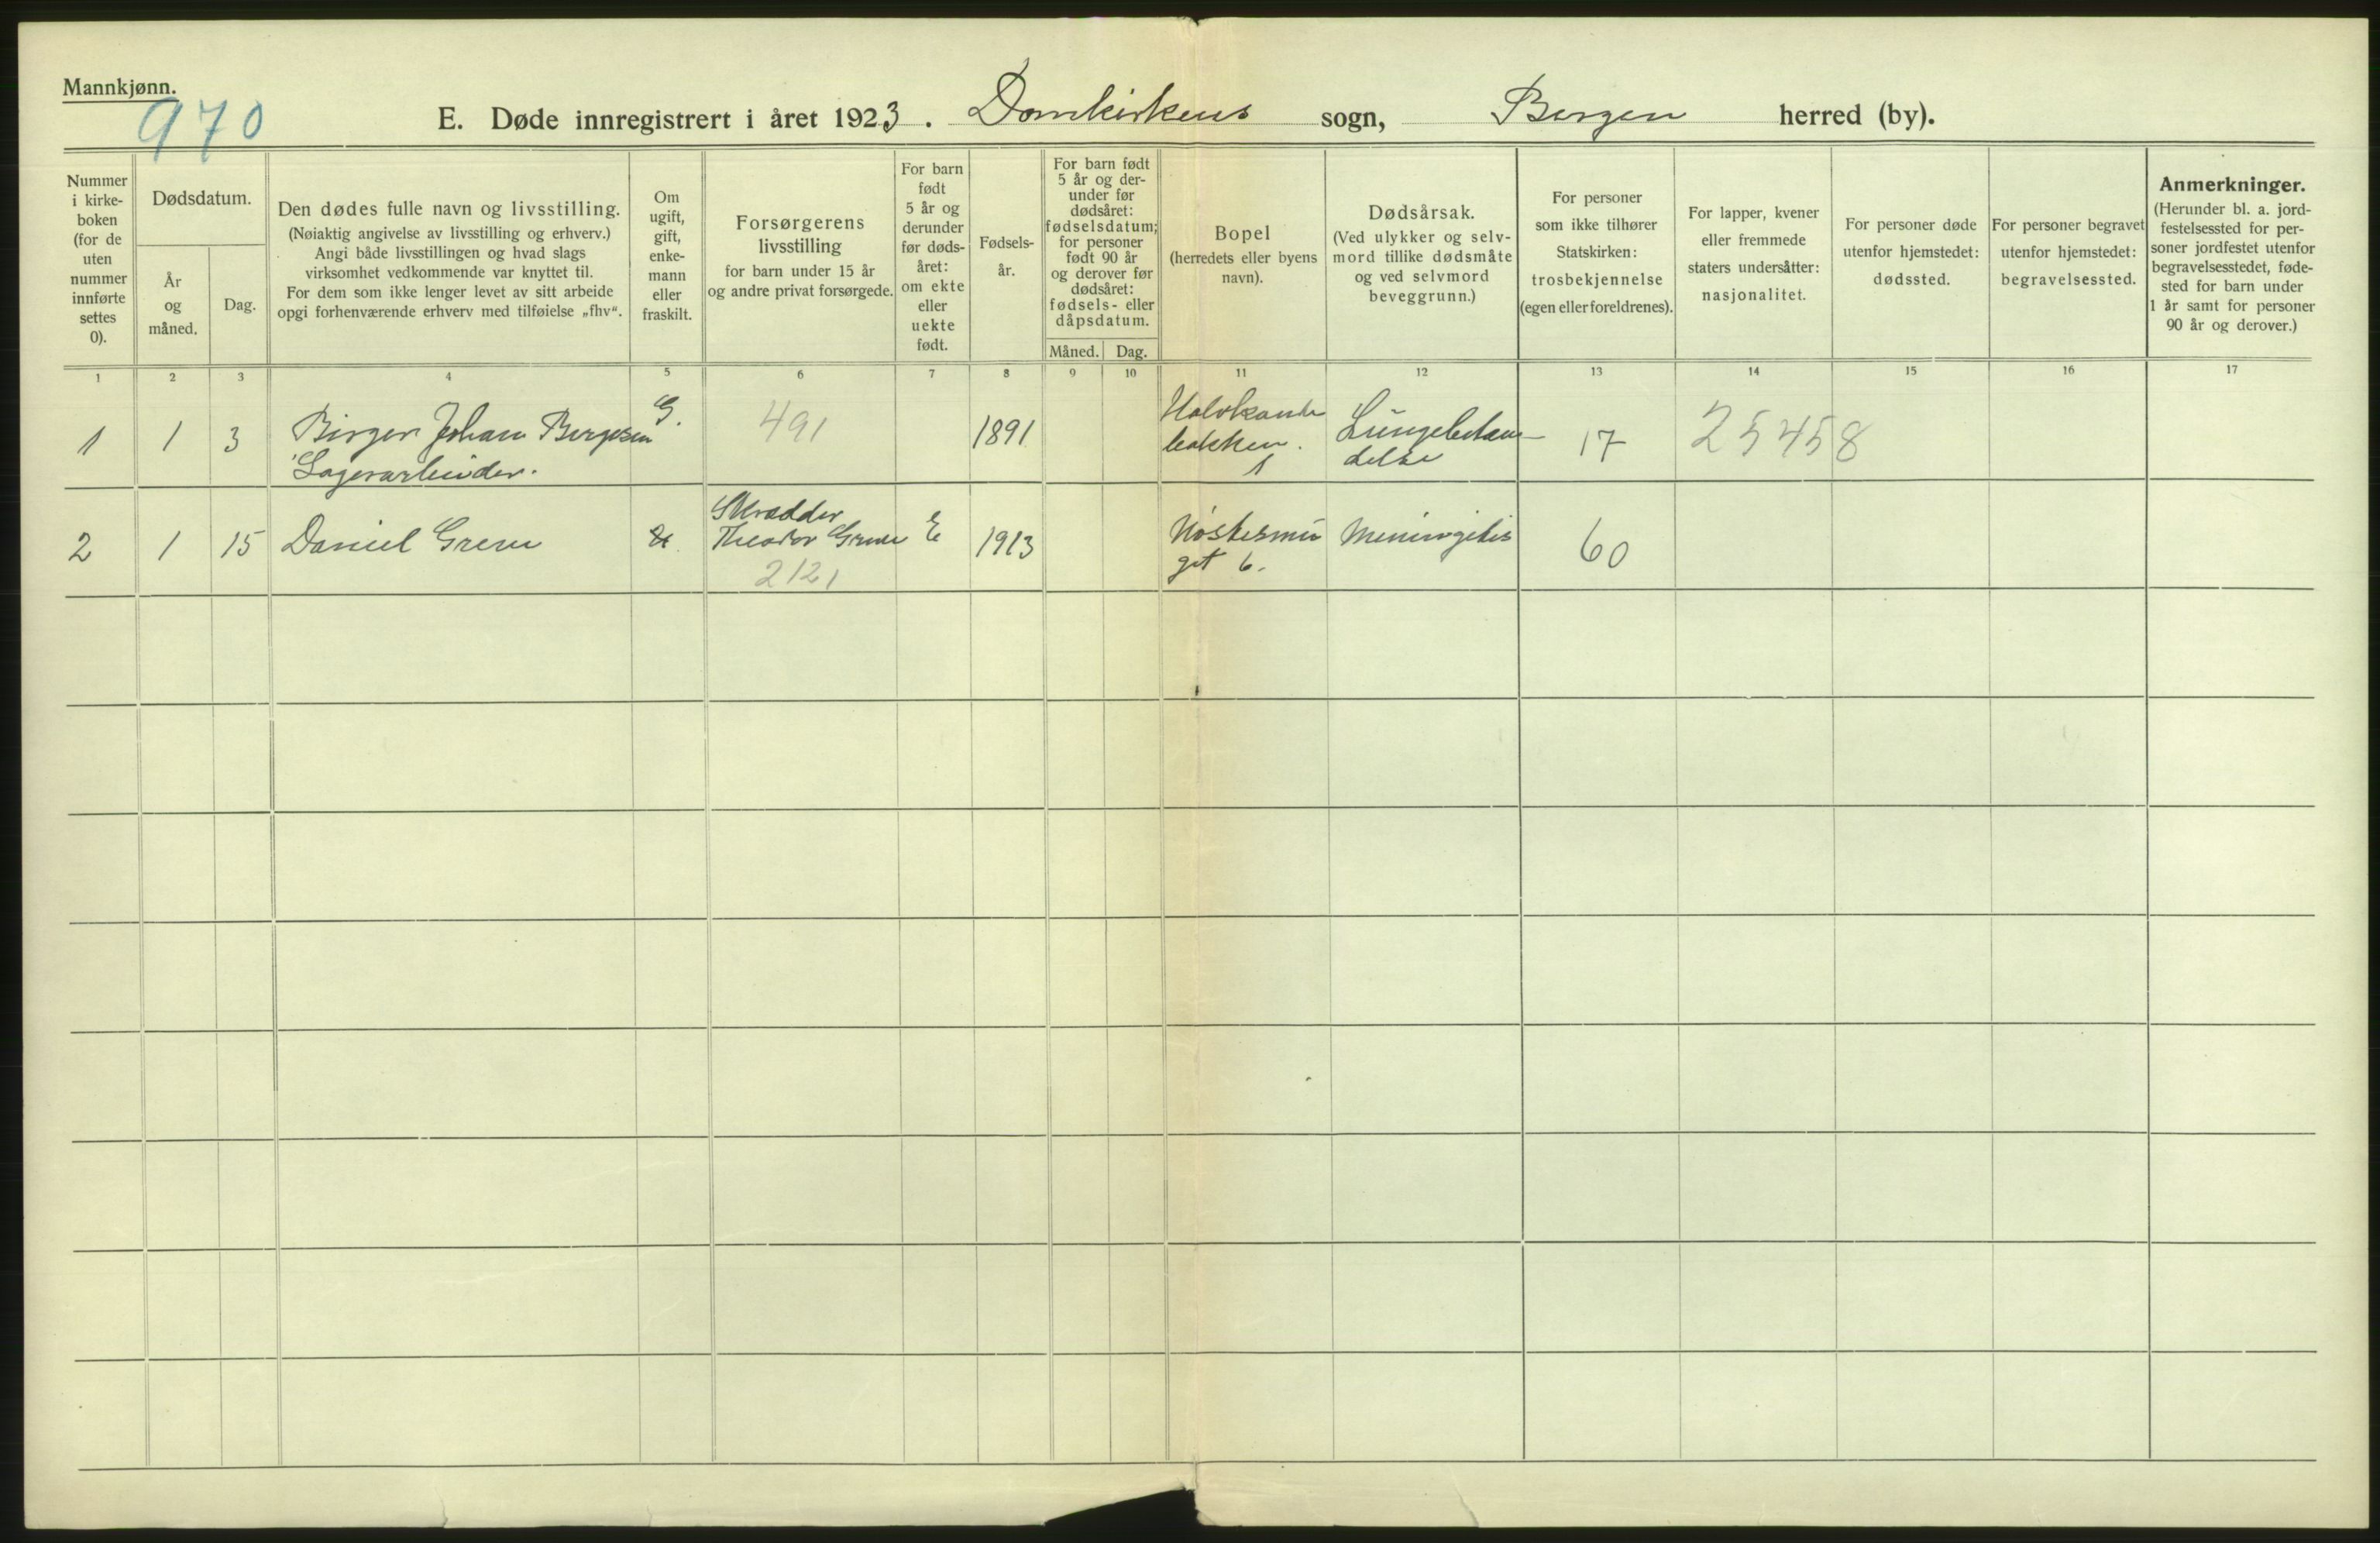 Mannkjønn.
970
E. Døde innregistrert i året 1923. Domkirkens sogn, Bergen herred (by).
Nummer
i kirke-
boken
(for de
uten
nummer
innførte
settes
0).
Dødsdatum.
År
og
måned.
Dag.
Den dødes fulle navn og livsstilling.
(Nøiaktig angivelse av livsstilling og erhverv.)
Angi både livsstillingen og hvad slags
virksomhet vedkommende var knyttet til.
For dem som ikke lenger levet av sitt arbeide
opgi forhenværende erhverv med tilføielse „fhv“.
Om
ugift,
gift,
enke-
mann
eller
fraskilt.
Forsørgerens
livsstilling
for barn under 15 år
og andre privat forsørgede.
For barn
født
5 år og
derunder
før døds-
året:
om ekte
eller
uekte
født.
Fødsels-
år.
For barn født
5 år og der-
under før
dødsåret:
fødselsdatum;
for personer
født 90 år
og derover før
dødsåret:
fødsels- eller
dåpsdatum.
Måned. Dag.
Bopel
(herredets eller byens
navn).
Dødsårsak.
(Ved ulykker og selv-
mord tillike dødsmåte
og ved selvmord
beveggrunn.)
For personer
som ikke tilhører
Statskirken:
trosbekjennelse
(egen eller foreldrenes).
For lapper, kvener
eller fremmede
staters undersåtter:
nasjonalitet.
For personer døde
utenfor hjemstedet:
dødssted.
For personer begravet
utenfor hjemstedet:
begravelsessted.
Anmerkninger.
(Herunder bl. a. jord-
festelsessted for per-
soner jordfestet utenfor
begravelsesstedet, føde-
sted for barn under
1 år samt for personer
90 år og derover.)
1 2 3 4 5 6 7 8 9 10 11 12 13 14 15 16 17
1 1 3 Birger Johan Bergesen G. 491 1891
Lagerarbeider.
Halvkande
bakken.
1
Lungebetæn-
delse
17 25458
2 1 15 Daniel Greve U. Skrædder
Theodor Greve E 1913
2121
Nøstesmu
get 6.
Meningitis
60